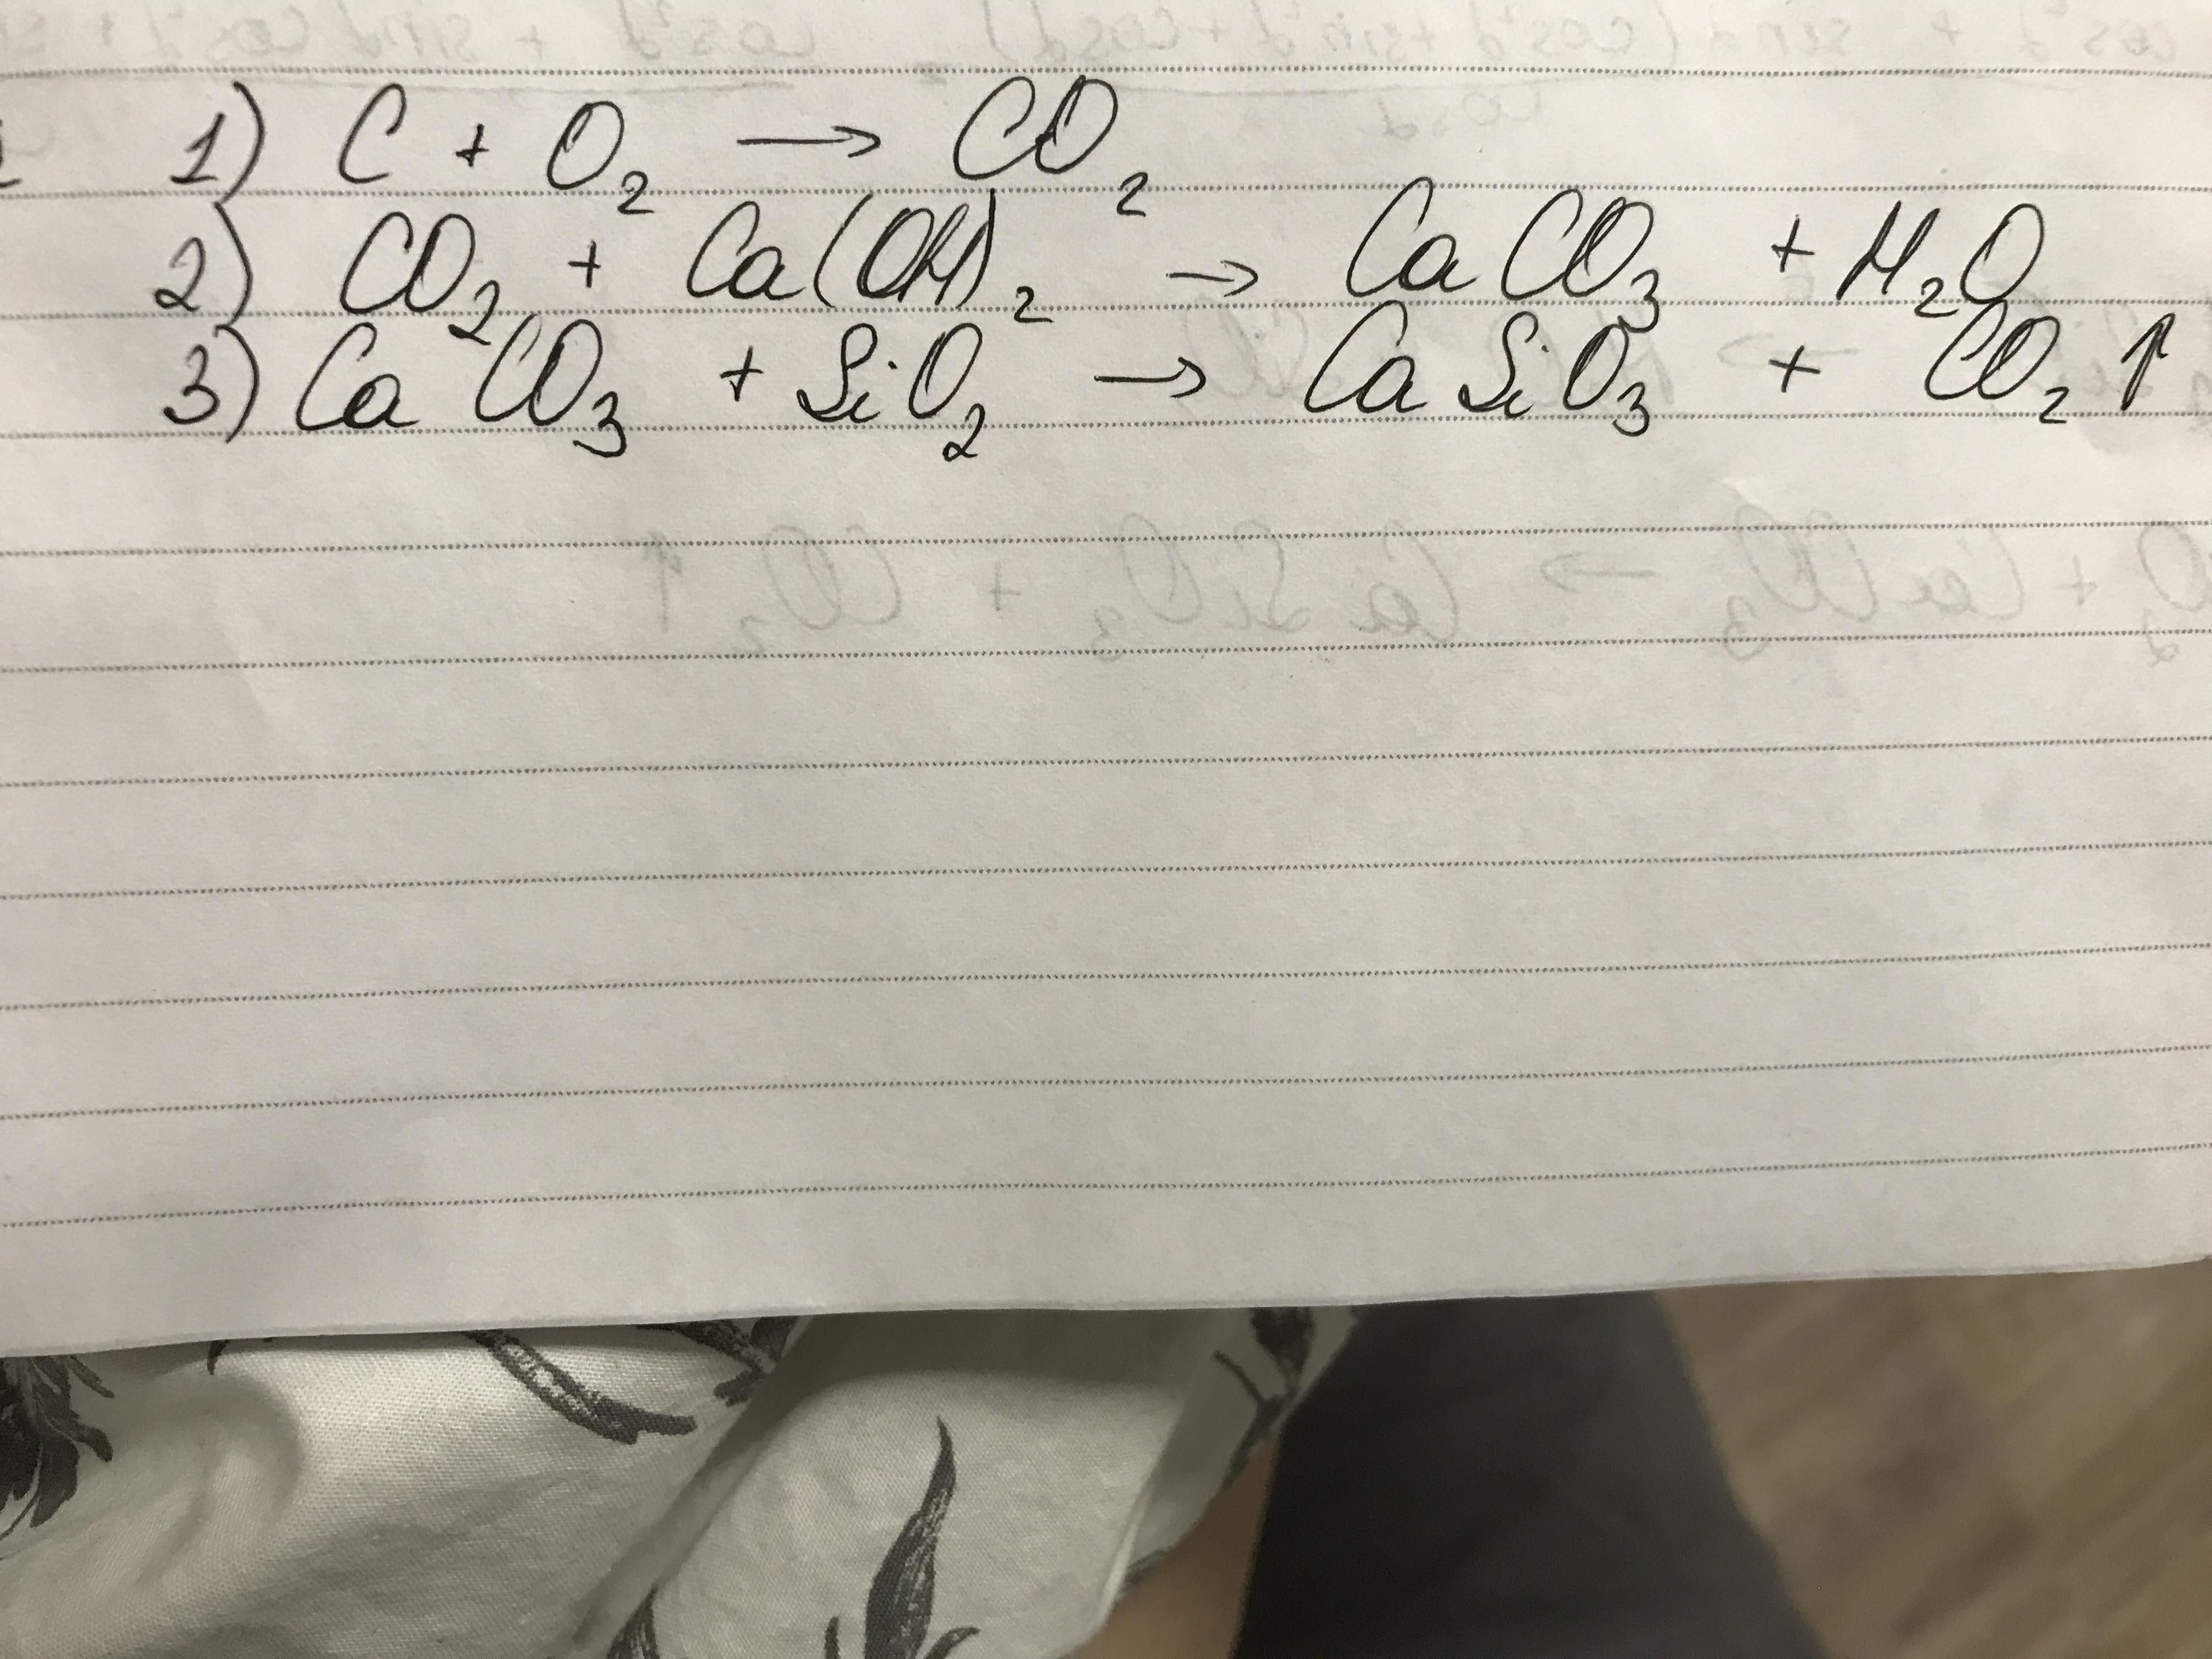 1) C + O₂ → CO₂
2) CO₂ + Ca(OH)₂ → CaCO₃ + H₂O
3) CaCO₃ + SiO₂ → CaSiO₃ + CO₂ ↑